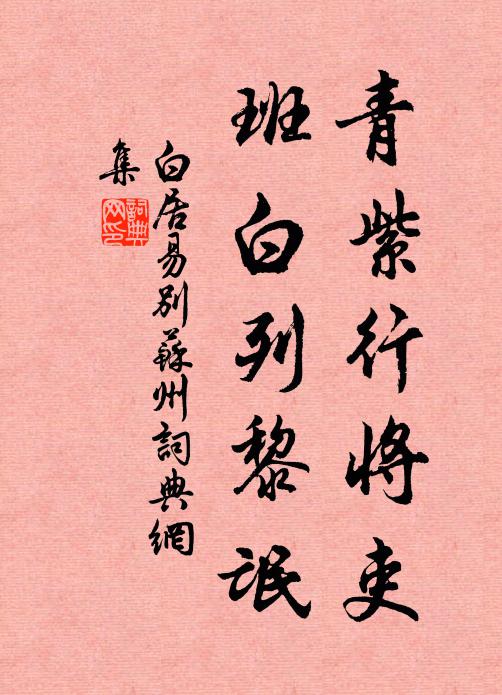 青紫行將吏
班白列黎氓
白居易別蘇州詞典網
集
詞典
网印